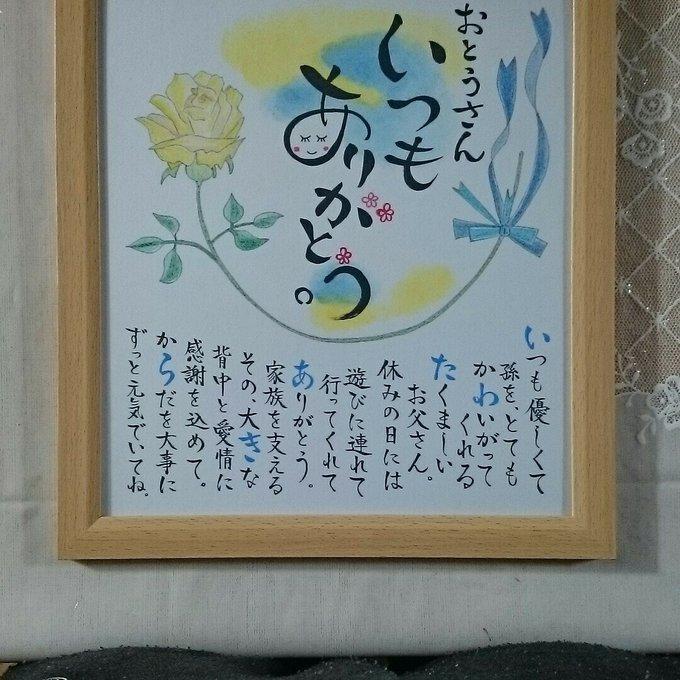 おとうさん
いつも
ありがとう。
いつも優しくて
孫を、とても
かわいがって
くれる
たくましい
お父さん。
休みの日には
遊びに連れて
行ってくれて
ありがとう。
家族を支える
その、大きな
背中と愛情に
感謝を込めて。
からだを大事に
ずっと元気でいてね。